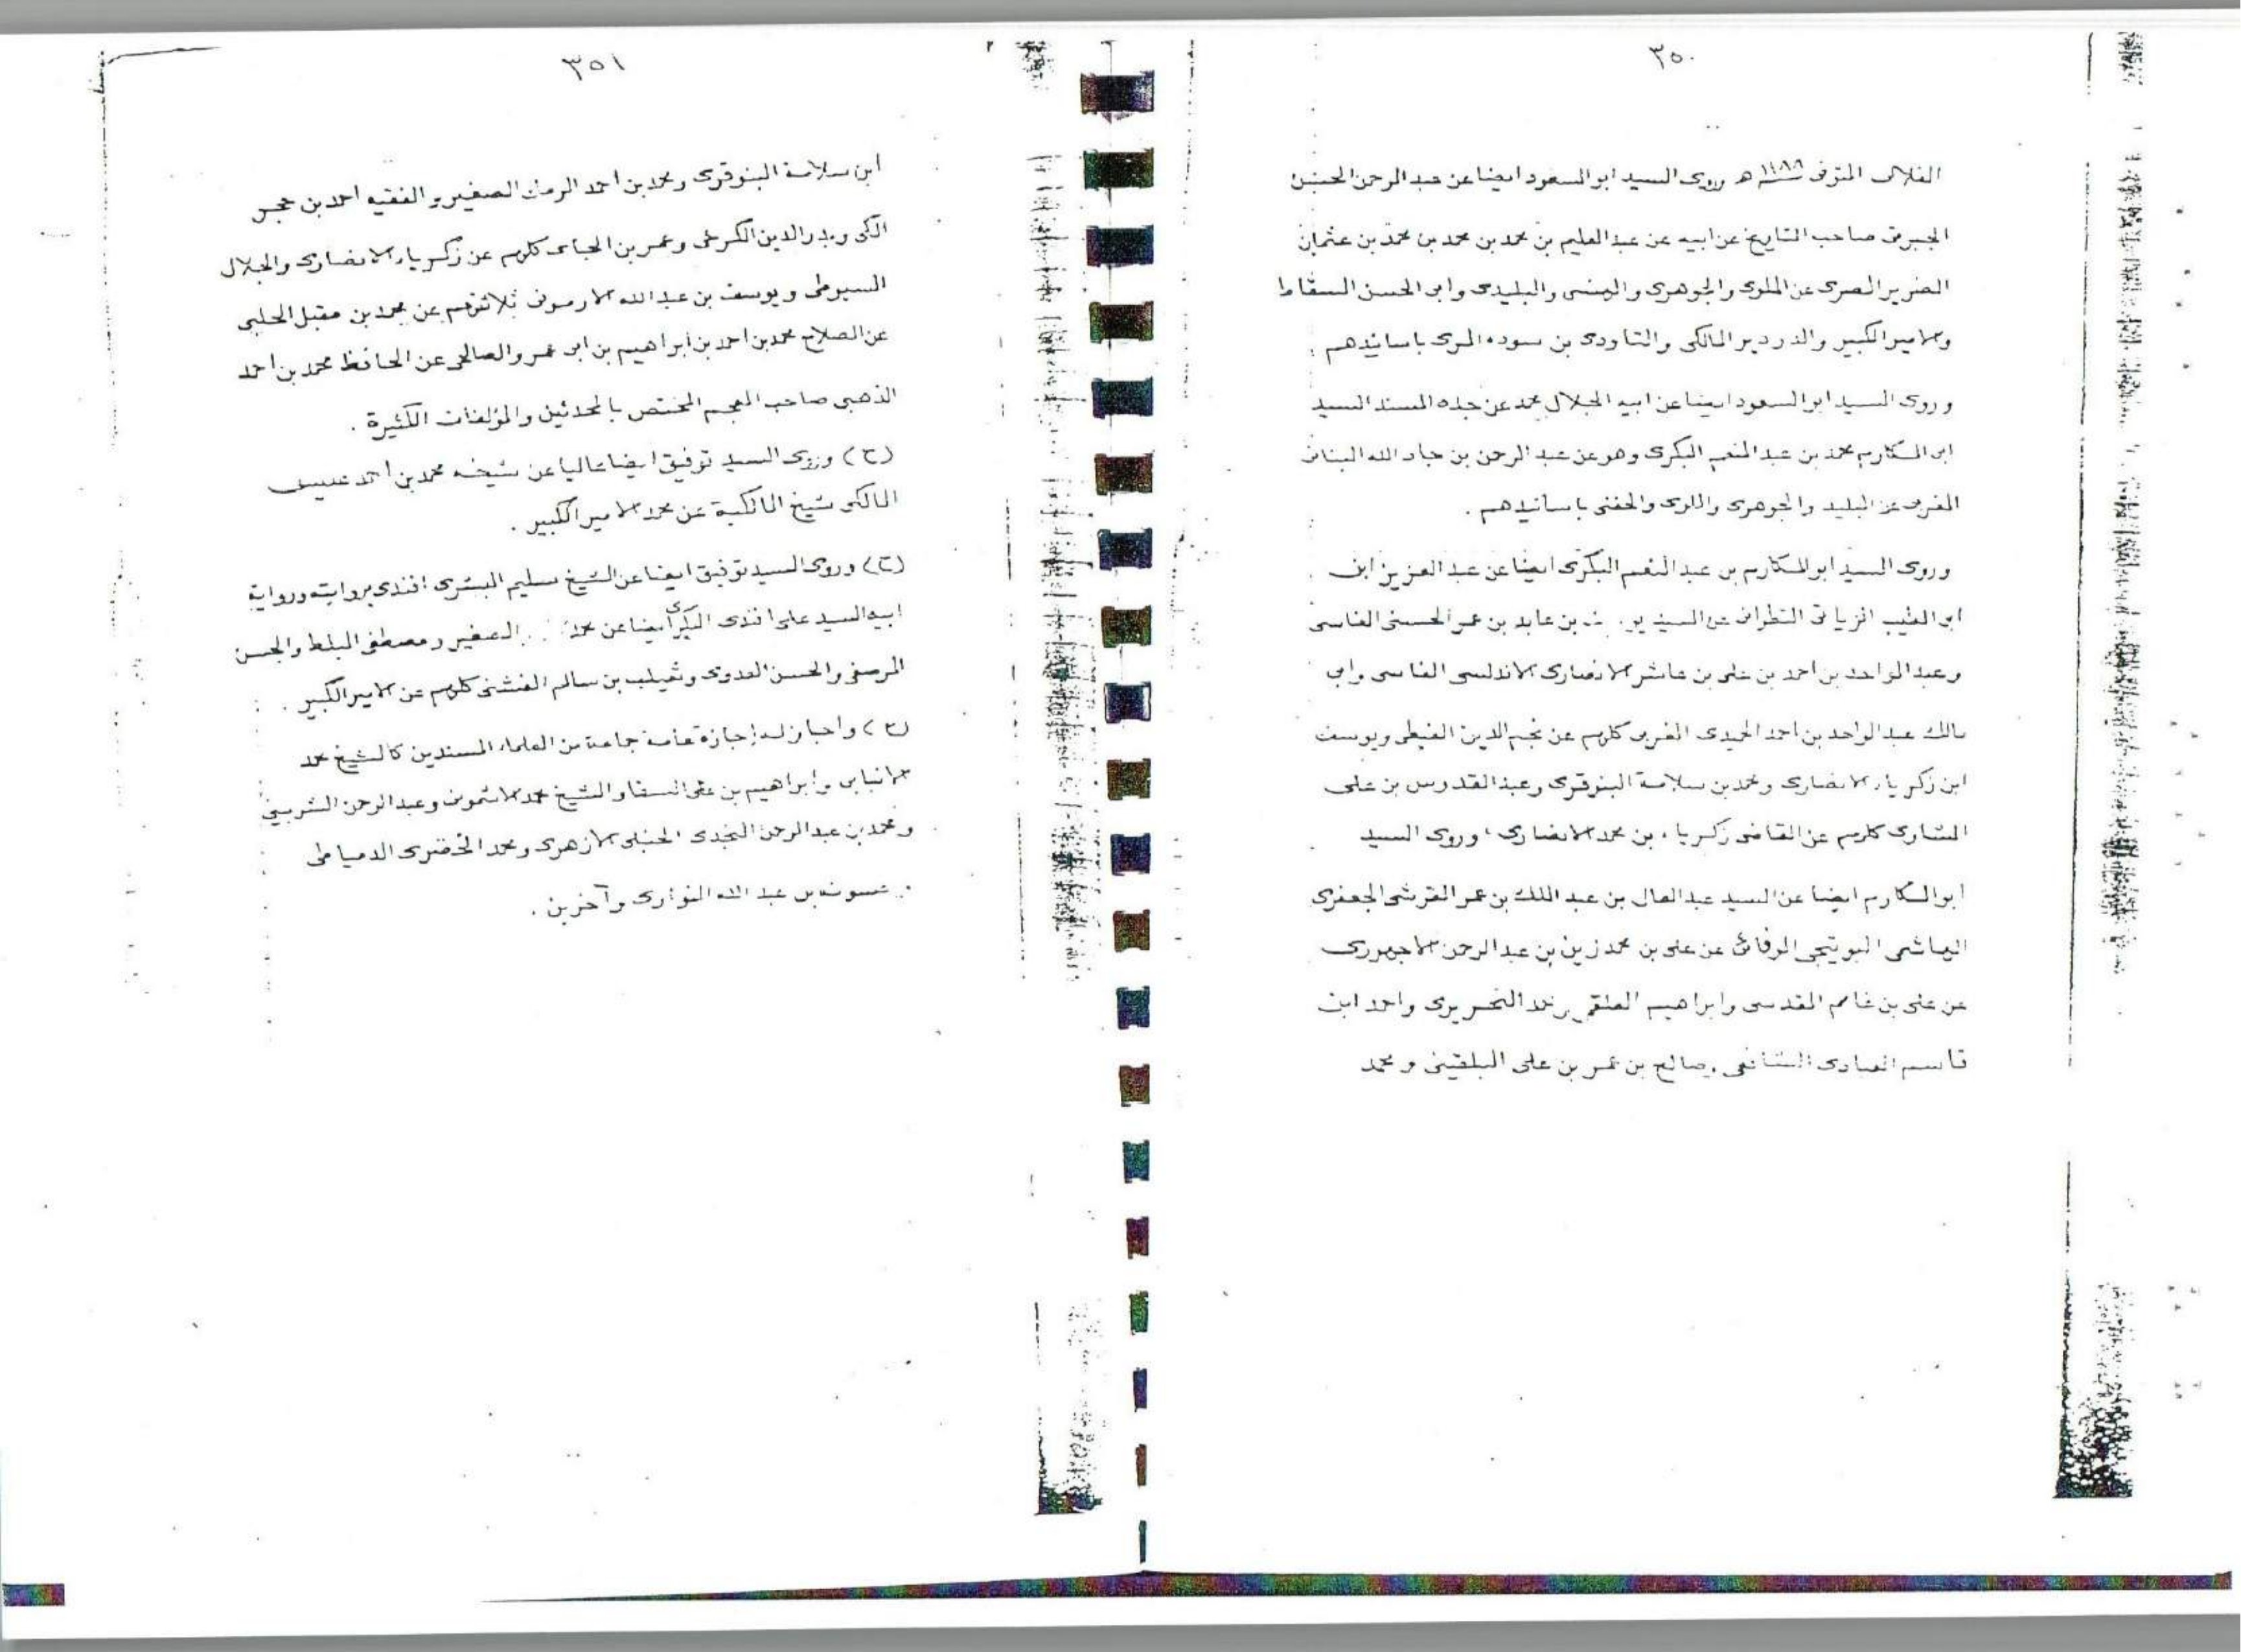 ٣٥٠
المتوفى ١١٨٨ هـ وروى السيد ابو السعود ايضا عن عبد الرحمن الحسنين
الجبرتى صاحب التاريخ عن ابيه عن عبد العليم بن محمد بن محمد بن محمد بن عثمان
الضرير المصرى عن الملوى والجوهرى والحفنى والبليدى وابى الحسن السقاط
والامير الكبير والدردير المالكى والتاودى بن سوده المرى باسانيدهم
وروى السيد ابو السعود ايضا عن ابيه الجلال محمد عن جده المسند السيد
ابو المكارم محمد بن عبد المنعم البكرى وهو عن عبد الرحمن بن جاد الله البنانى
المغربى عن البليد والجوهرى والملوى والحفنى باسانيدهم .
وروى السيد ابو المكارم بن عبد المنعم البكرى ايضا عن عبد العزيز ابن
ابو الطيب الزياتى عن السيد بن عابد بن عمر الحسنى الفاسى
وعبد الواحد بن احمد بن على بن عاشر الانصارى الاندلسى الفاسى وابى
مالك عبد الواحد بن احمد الحميدى المغربى كلهم عن نجم الدين الغيطى ويوسف
ابن زكرياء الانصارى ومحمد بن سلامة البنوفرى وعبد القدوس بن على
الشناوى كلهم عن القاضى زكرياء بن محمد الانصارى ، وروى السيد
ابو المكارم ايضا عن السيد عبد العال بن عبد الملك بن عمر القرشى الجعفرى
الهاشمى البوتيجى الوفائى عن على بن محمد زين بن عبد الرحمن الاجهورى
عن على بن غانم المقدسى وابراهيم العلقمى ومحمد النحريرى واحمد ابن
قاسم العبادى الشافعى وصالح بن عمر بن على البلقينى ومحمد
٣٥١
ابن سلامة البنوفرى ومحمد بن احمد الرملى الصغير والفقيه احمد بن حجر
المكى وبدر الدين الكرخى وعمر بن الجباى كلهم عن زكرياء الانصارى والجلال
السيوطى ويوسف بن عبد الله الارميونى ثلاثتهم عن محمد بن مقبل الحلبى
عن الصلاح محمد بن احمد بن ابراهيم بن ابى عمرو الصالحى عن الحافظ محمد بن احمد
الذهبى صاحب المعجم المختص بالمحدثين والمؤلفات الكثيرة .
(ح) وروى السيد توفيق ايضا عاليا عن شيخه محمد بن احمد عليش
المالكى شيخ المالكية عن محمد الامير الكبير .
(ح) وروى السيد توفيق ايضا عن الشيخ سليم البشرى افندى بروايته ورواية
ابيه السيد على افندى البكرى ايضا عن محمد الصغير ومصطفى المبلط والحسن
المرصفى والحسن العدوى وثعيلب بن سالم الفشنى كلهم عن الامير الكبير .
(ح) واجاز له إجازة عامة جماعة من العلماء المسندين كالشيخ محمد
الانبابى وابراهيم بن على السقا والشيخ محمد الاشمونى وعبد الرحمن الشربينى
ومحمد بن عبد الرحمن النجدى الحنبلى الازهرى ومحمد الخضرى الدمياطى
حسونه بن عبد الله النواوى وآخرين .